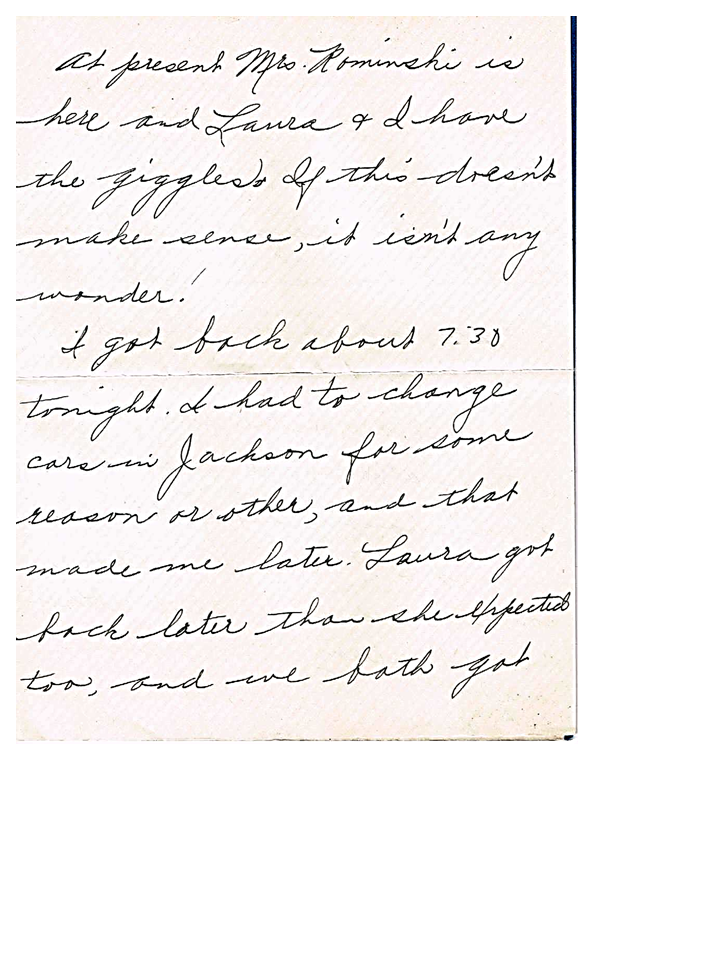 At present Mrs. Rominski is
here and Laura & I have
the giggles. If this doesn't
make sense, it isn't any
wonder!
I got back about 7:30
tonight. I had to change
cars in Jackson for some
reason or other, and that
made me later. Laura got
back later than she expected
too, and we both got